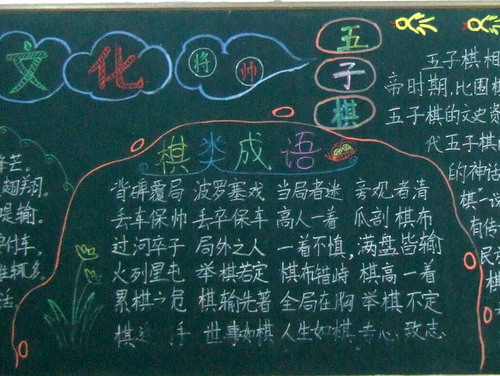 文化
将 帅
五子棋
棋类成语
背碑覆局 波罗塞戏 当局者迷 旁观者清
丢车保帅 丢卒保车 高人一着 瓜剖棋布
过河卒子 局外之人 一着不慎，满盘皆输
火列星屯 举棋若定 棋布错峙 棋高一着
累棋 危 棋输先著 全局在胸 举棋不定
棋 手 世事如棋 人生如棋 专心致志
五子棋相
帝时期，比围棋
五子棋的文史资
代五子棋的
的神话
棋"一说
有传
民
棋
芒。
翅翔。
堤输。
车。